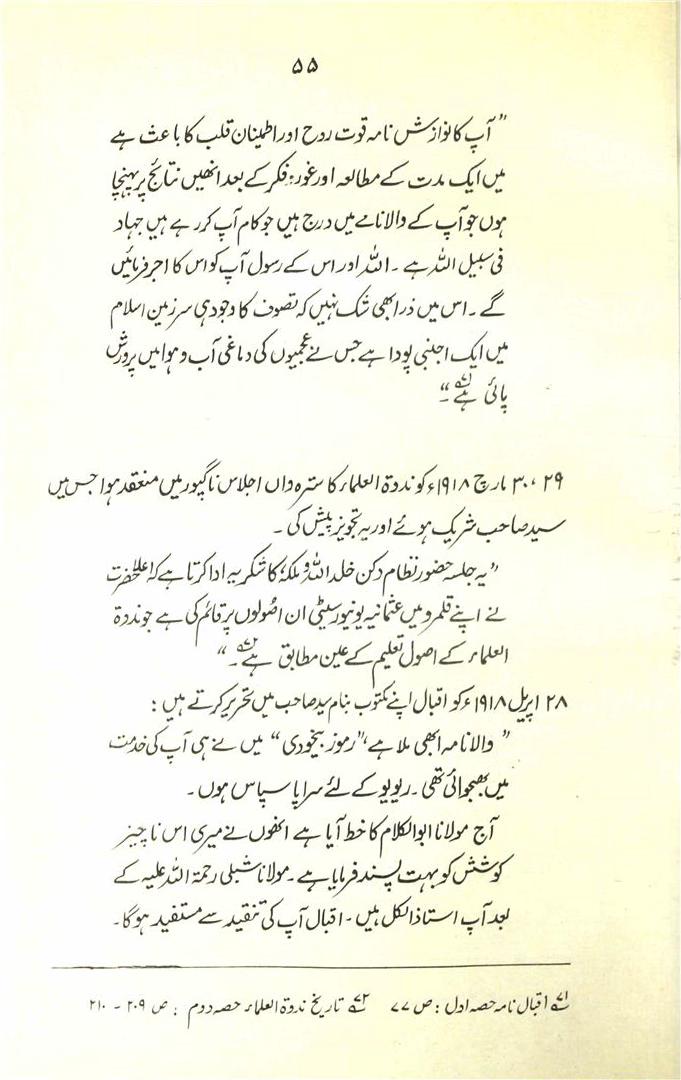 ۵۵
"آپ کا نوازش نامہ قوت روح اور اطمینان قلب کا باعث ہے
میں ایک مدت کے مطالعہ اور غور و فکر کے بعد انھیں نتائج پر پہنچا
ہوں جو آپ کے والا نامے میں درج ہیں جو کام آپ کر رہے ہیں جہاد
فی سبیل اللہ ہے ۔ اللہ اور اس کے رسول آپ کو اس کا اجر فرمائیں
گے ۔ اس میں ذرا بھی شک نہیں کہ تصوف کا وجود ہی سرزمین اسلام
میں ایک اجنبی پودا ہے جس نے عجمیوں کی دماغی آب و ہوا میں پرورش
پائی ہے۷۱۔"
۲۹، ۳۰ مارچ ۱۹۱۸ء کو ندوۃ العلماء کا سترہ واں اجلاس ناگپور میں منعقد ہوا جس میں
سید صاحب شریک ہوئے اور یہ تجویز پیش کی ۔
"یہ جلسہ حضور نظام دکن خلد اللہ و ملکہٗ کا شکریہ ادا کرتا ہے کہ اعلیٰحضرت
نے اپنے قلمرو میں عثمانیہ یونیورسیٹی ان اصُولوں پر قائم کی ہے جو ندوۃ
العلماء کے اصول تعلیم کے عین مطابق ہے۷۲۔"
۲۸ اپریل ۱۹۱۸ء کو اقبال اپنے مکتوب بنام سید صاحب میں تحریر کرتے ہیں :
"والا نامہ ابھی ملا ہے، "رموز بیخودی" میں نے ہی آپ کی خدمت
میں بھجوائی تھی ۔ ریویو کے لئے سراپا سپاس ہوں ۔
آج مولانا ابوالکلام کا خط آیا ہے انھوں نے میری اس ناچیز
کوشش کو بہت پسند فرمایا ہے ۔ مولانا شبلی رحمۃ اللہ علیہ کے
بعد آپ استاذ الکل ہیں ۔ اقبال آپ کی تنقید سے مستفید ہوگا ۔
۷۱ اقبال نامہ حصہ اول : ص ۷۷ ۷۲ تاریخ ندوۃ العلماء حصہ دوم : ص ۲۰۹ - ۲۱۰